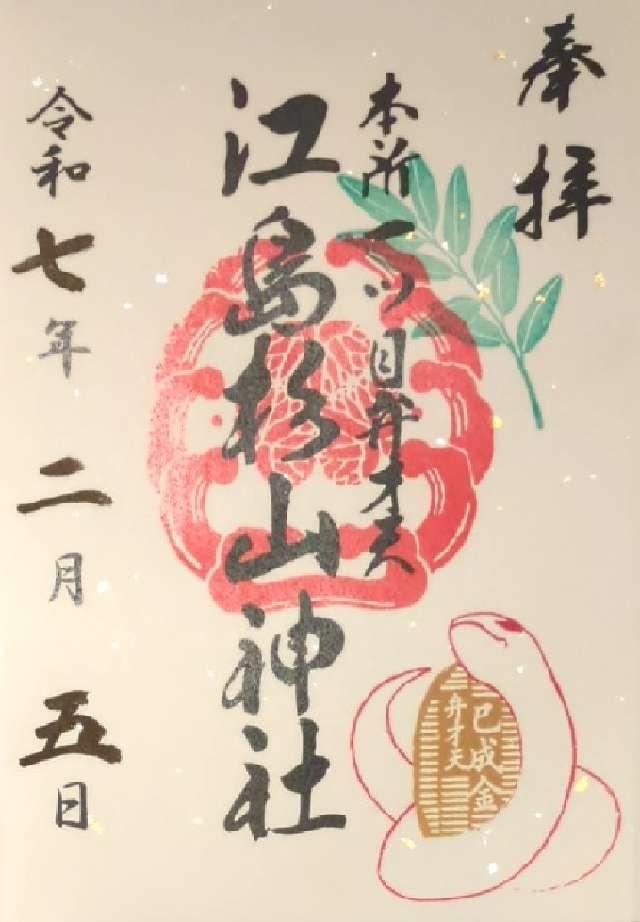 奉拝
本所一つ目弁才天
江島杉山神社
令和七年二月五日
巳成金
弁才天